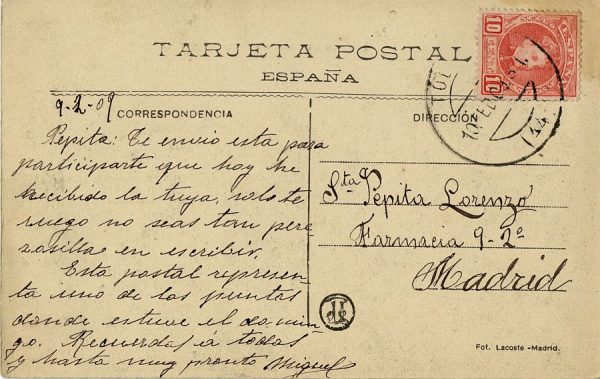 TARJETA POSTAL
ESPAÑA
9-2-09
CORRESPONDENCIA
Pepita: Te envio esta para
participarte que hoy he
recibido la tuya, solo te
ruego no seas tan pere
zosilla en escribir.
Esta postal represen
ta uno de los puntos
donde estuve el domin
go. Recuerdos á todos
y hasta muy pronto Miguel
DIRECCIÓN
Sta Pepita Lorenzo
Farmacia 9-2º
Madrid
Fot. Lacoste-Madrid.
10
10